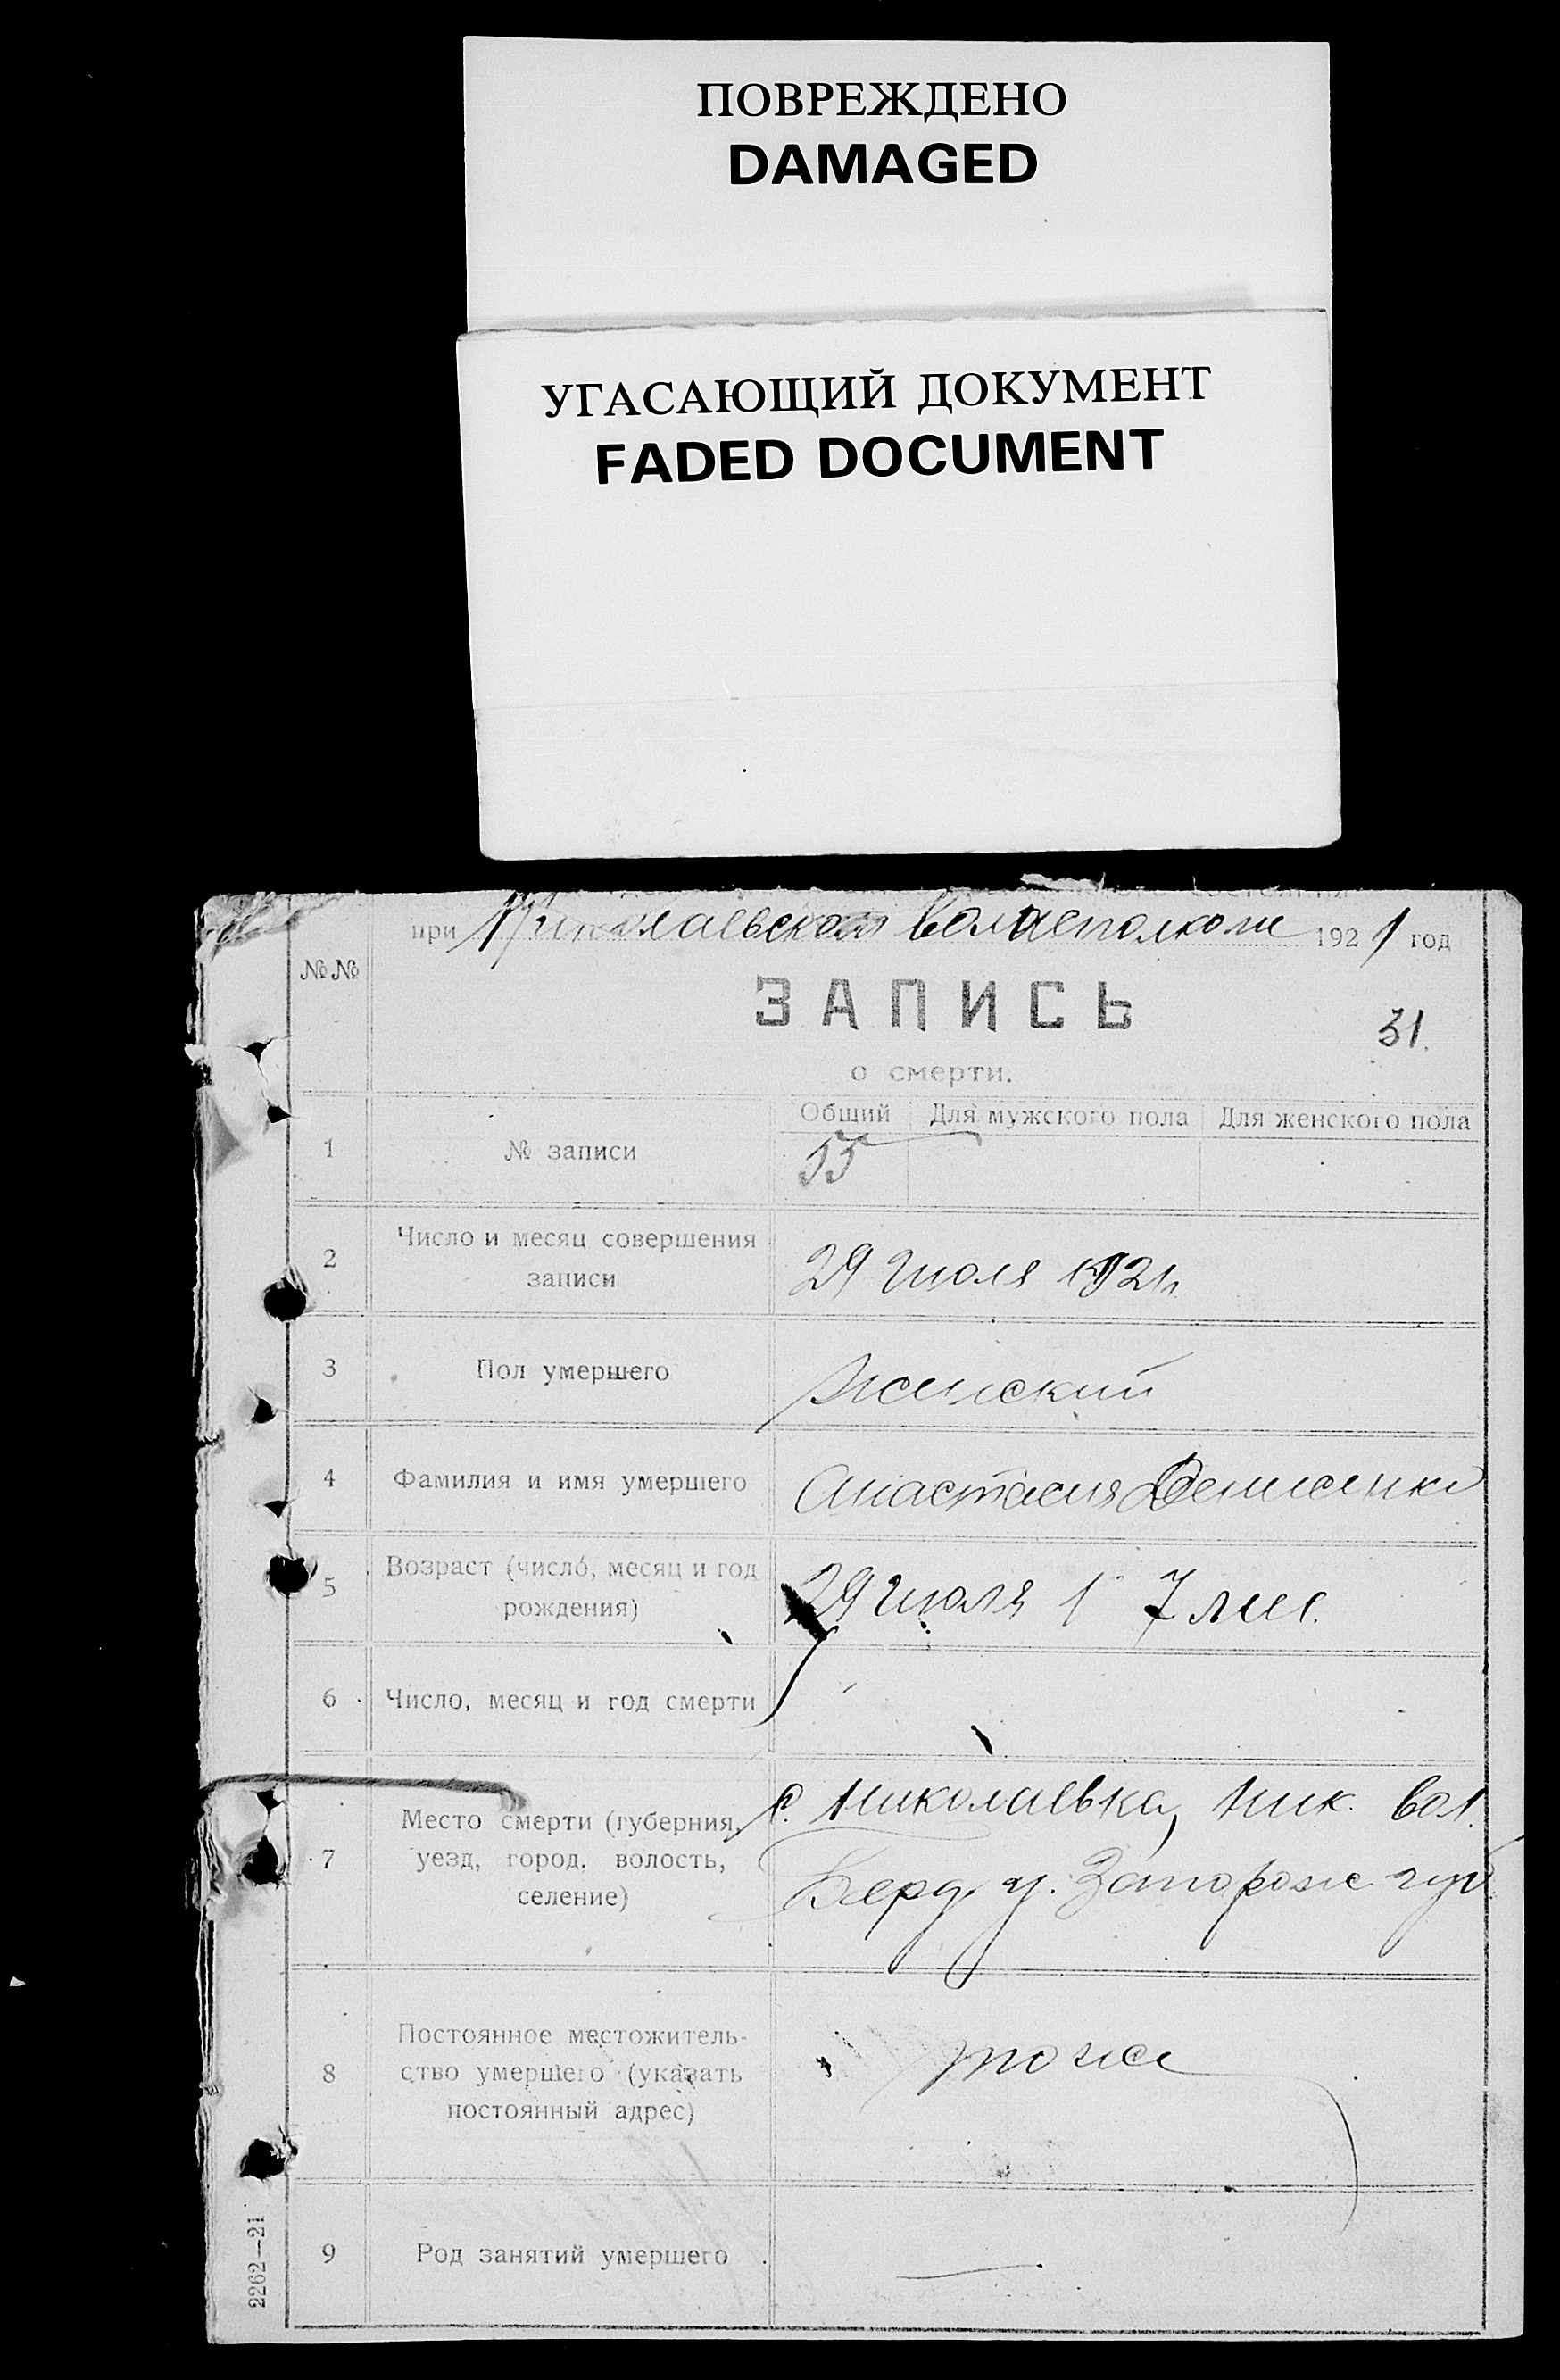 ПОВРЕЖДЕНО
DAMAGED
УГАСАЮЩИЙ ДОКУМЕНТ
FADED DOCUMENT
при Николаевском волисполкоме 1921 год
№№
ЗАПИСЬ
31.
о смерти.
Общий Для мужского пола Для женского пола
1 № записи 55
2 Число и месяц совершения
записи
29 Июля 1921
3 Пол умершего Женский
4 Фамилия и имя умершего Анастасия Денисенко
5 Возраст (число, месяц и год
рождения)
29 июля 1 7 мес.
6 Число, месяц и год смерти
7 Место смерти (губерния,
уезд, город, волость,
селение)
с. Николаевка, Ник. вол.
Берд. у. Запорож губ
8 Постоянное местожитель-
ство умершего (указать
постоянный адрес)
тоже
9 Род занятий умершего —
2262—21